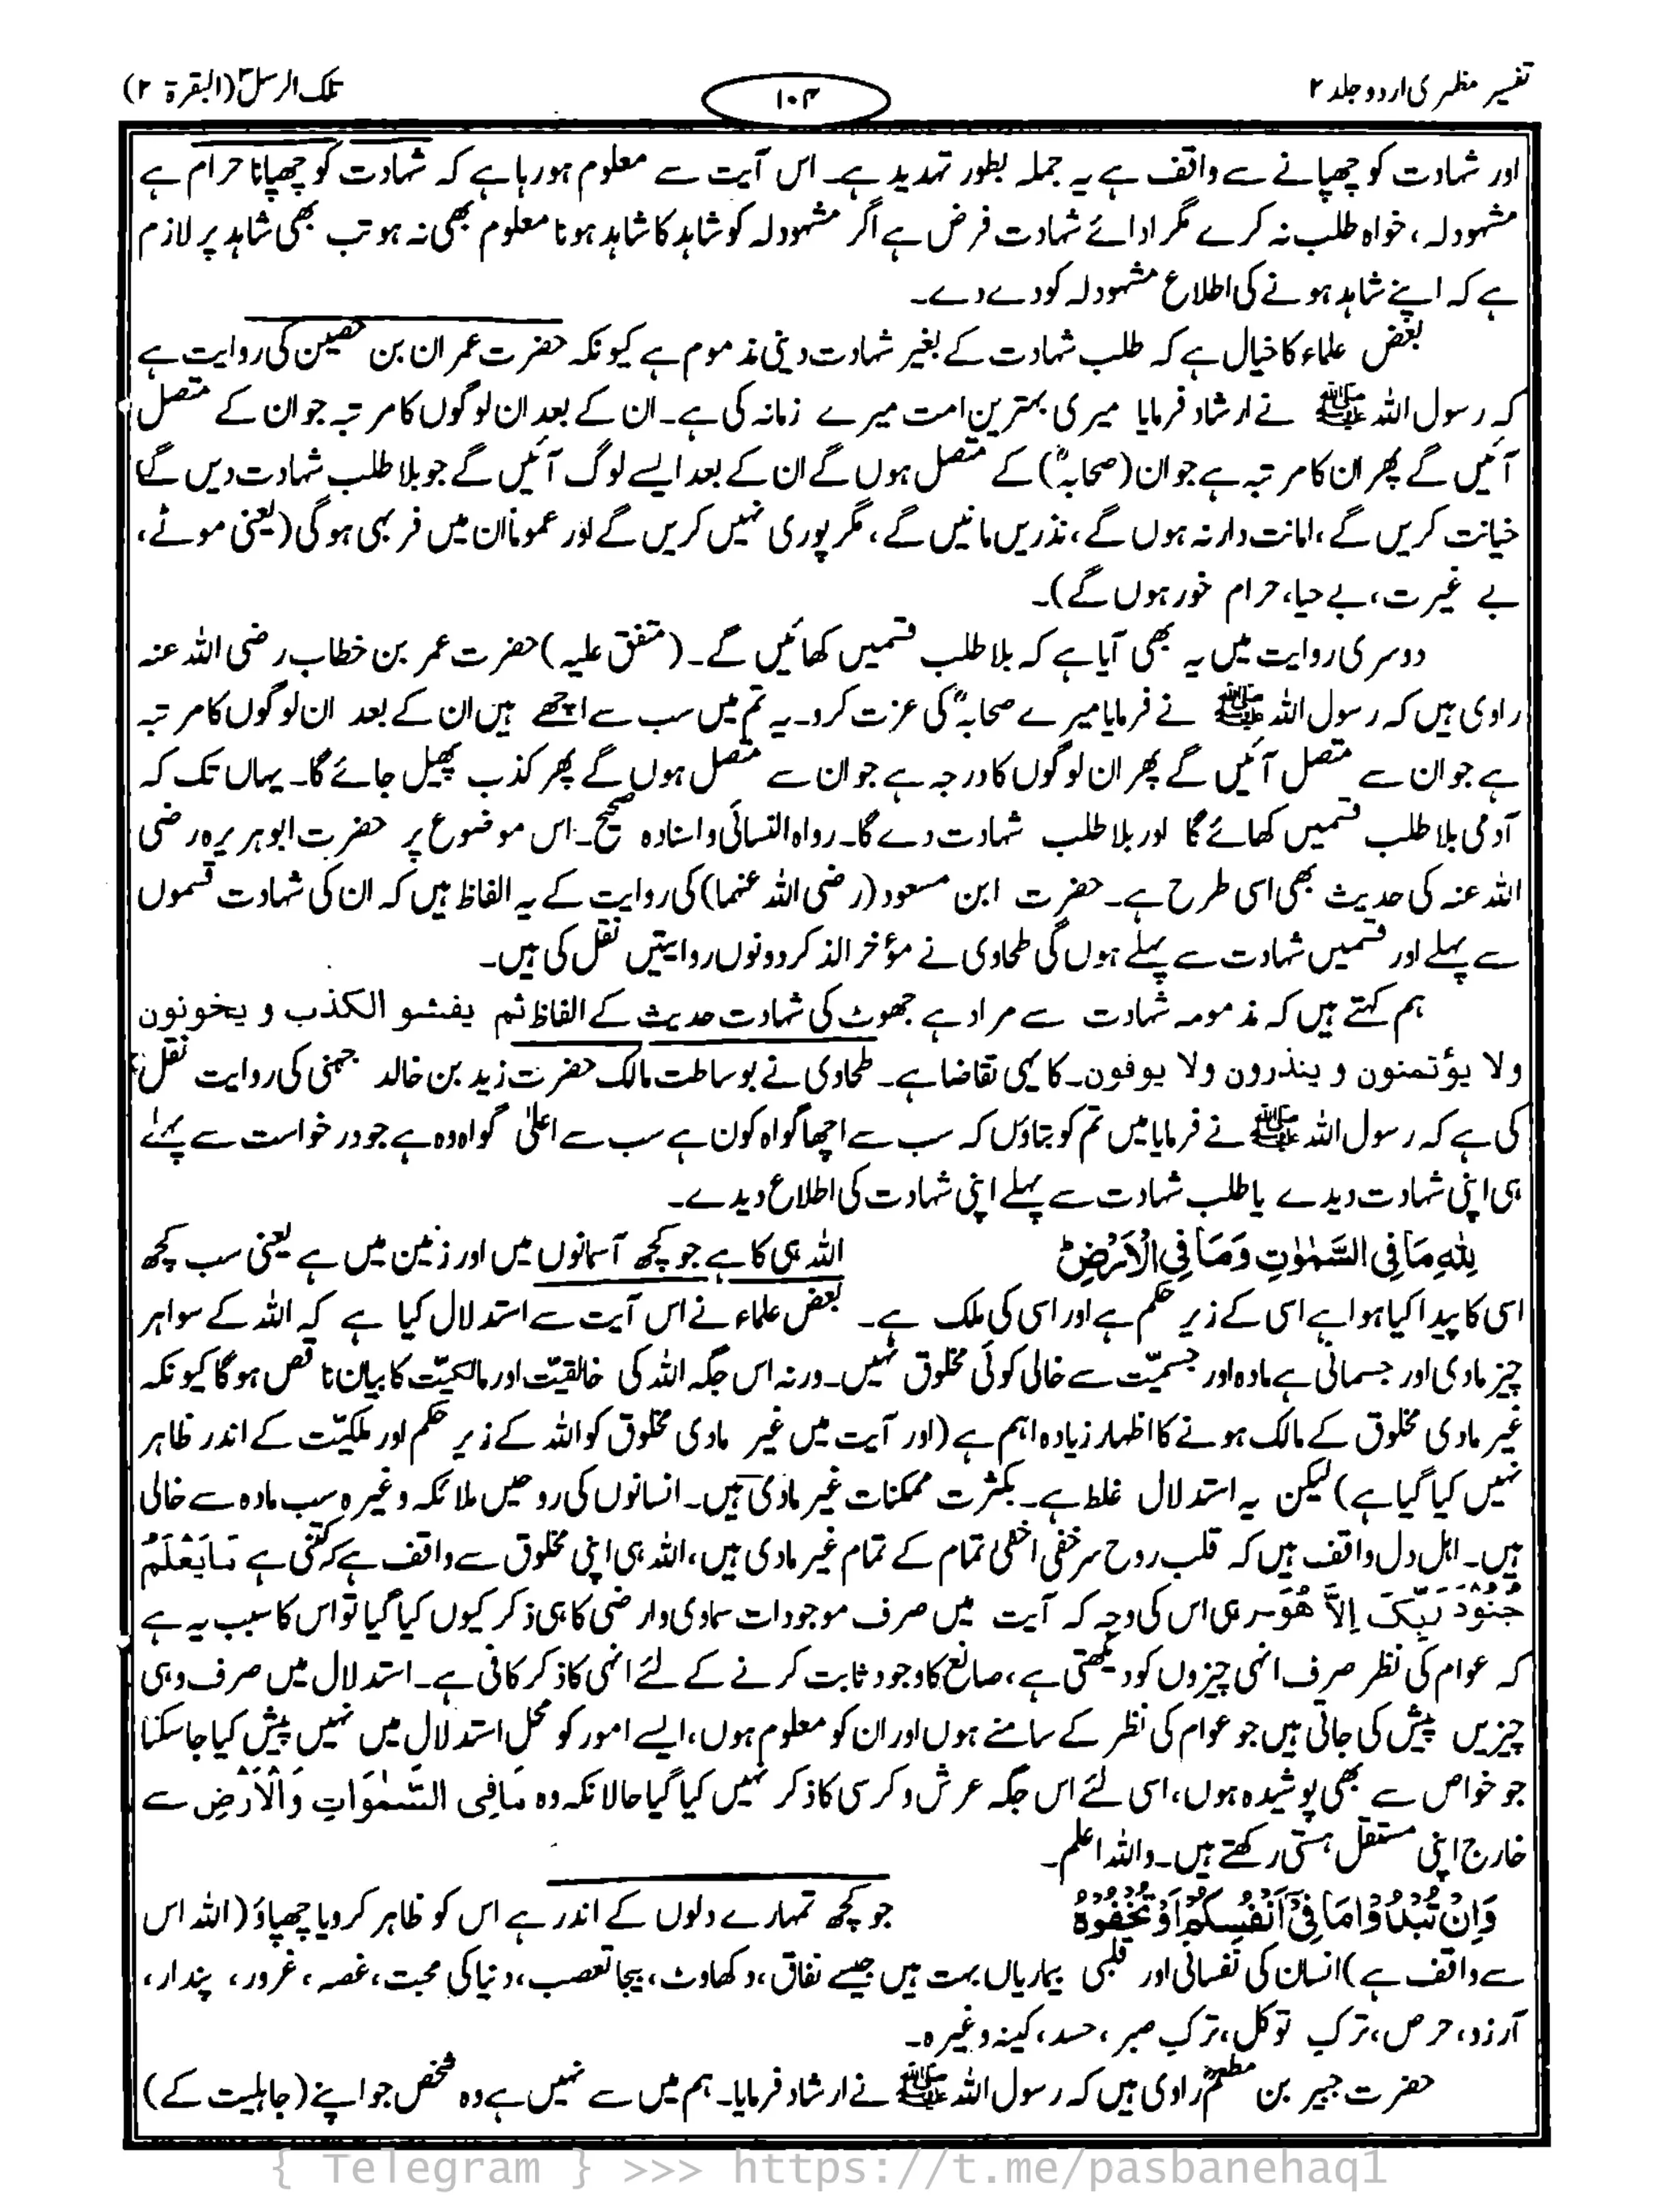 تفسیر مظہری اردو جلد ۲
۱۰۳
تلک الرسل ۳ (البقرۃ ۲)
اور شہادت کو چھپانے سے واقف ہے یہ جملہ بطور تہدید ہے۔ اس آیت سے معلوم ہورہا ہے کہ شہادت کو چھپانا حرام ہے
مشہودلہ، خواہ طلب نہ کرے مگر ادائے شہادت فرض ہے اگر مشہودلہ کو شاہد کا شاہد ہونا معلوم بھی نہ ہو تب بھی شاہد پر لازم
ہے کہ اپنے شاہد ہونے کی اطلاع مشہودلہ کو دے دے۔
بعض علماء کا خیال ہے کہ طلب شہادت کے بغیر شہادت دینی مذموم ہے کیونکہ حضرت عمران بن حصین کی روایت ہے
کہ رسول اللہ ﷺ نے ارشاد فرمایا میری بہترین امت میرے زمانہ کی ہے۔ ان کے بعد ان لوگوں کا مرتبہ جو ان کے متصل
آئیں گے پھر ان کا مرتبہ ہے جو ان (صحابہؓ) کے متصل ہوں گے ان کے بعد ایسے لوگ آئیں گے جو بلا طلب شہادت دیں گے
خیانت کریں گے، امانت دار نہ ہوں گے، نذریں مانیں گے، مگر پوری نہیں کریں گے اور عموماً ان میں فربہی ہوگی (یعنی موٹے،
بے غیرت، بے حیا، حرام خور ہوں گے)۔
دوسری روایت میں یہ بھی آیا ہے کہ بلا طلب قسمیں کھائیں گے۔ (متفق علیہ) حضرت عمر بن خطاب رضی اللہ عنہ
راوی ہیں کہ رسول اللہ ﷺ نے فرمایا میرے صحابہؓ کی عزت کرو۔ یہ تم میں سب سے اچھے ہیں ان کے بعد ان لوگوں کا مرتبہ
ہے جو ان سے متصل آئیں گے پھر ان لوگوں کا درجہ ہے جو ان سے متصل ہوں گے پھر کذب پھیل جائے گا۔ یہاں تک کہ
آدمی بلا طلب قسمیں کھائے گا اور بلا طلب شہادت دے گا۔ رواہ النسائی و اسنادہ صحیح۔ اس موضوع پر حضرت ابوہریرہ رضی
اللہ عنہ کی حدیث بھی اسی طرح ہے۔ حضرت ابن مسعود (رضی اللہ عنہما) کی روایت کے یہ الفاظ ہیں کہ ان کی شہادت قسموں
سے پہلے اور قسمیں شہادت سے پہلے ہوں گی طحاوی نے مؤخر الذکر دونوں روایتیں نقل کی ہیں۔
ہم کہتے ہیں کہ مذمومہ شہادت سے مراد ہے جھوٹ کی شہادت حدیث کے الفاظ ثم یفشو الکذب و یخونون
ولا یؤتمنون و ینذرون ولا یوفون۔ کا یہی تقاضا ہے۔ طحاوی نے بوساطت مالک حضرت زید بن خالد جہنی کی روایت نقل
کی ہے کہ رسول اللہ ﷺ نے فرمایا میں تم کو بتاؤں کہ سب سے اچھا گواہ کون ہے سب سے اعلیٰ گواہ وہ ہے جو درخواست سے پہلے
ہی اپنی شہادت دیدے یا طلب شہادت سے پہلے اپنی شہادت کی اطلاع دیدے۔
لِلّٰهِ مَا فِی السَّمٰوٰتِ وَمَا فِی الْاَرْضِ ؕ اللہ ہی کا ہے جو کچھ آسمانوں میں اور زمین میں ہے یعنی سب کچھ
اسی کا پیدا کیا ہوا ہے اسی کے زیر حکم ہے اور اسی کی ملک ہے۔ بعض علماء نے اس آیت سے استدلال کیا ہے کہ اللہ کے سوا ہر
چیز مادی اور جسمانی ہے مادہ اور جسمیّت سے خالی کوئی مخلوق نہیں۔ ورنہ اس جگہ اللہ کی خالقیّت اور مالکیّت کا بیان ناقص ہوگا کیونکہ
غیر مادی مخلوق کے مالک ہونے کا اظہار زیادہ اہم ہے (اور آیت میں غیر مادی مخلوق کو اللہ کے زیر حکم اور ملکیّت کے اندر ظاہر
نہیں کیا گیا ہے) لیکن یہ استدلال غلط ہے۔ بکثرت ممکنات غیر مادی ہیں۔ انسانوں کی روحیں ملائکہ وغیرہ سب مادہ سے خالی
ہیں۔ اہل دل واقف ہیں کہ قلب روح سر خفی اخفیٰ تمام کے تمام غیر مادی ہیں، اللہ ہی اپنی مخلوق سے واقف ہے کہ کتنی ہے مَا یَعْلَمُ
جُنُوْدَ رَبِّکَ اِلاَّ هُوَ۔ رہی اس کی وجہ کہ آیت میں صرف موجودات سماوی وارضی کا ہی ذکر کیوں کیا گیا تو اس کا سبب یہ ہے
کہ عوام کی نظر صرف انہی چیزوں کو دیکھتی ہے، صانع کا وجود ثابت کرنے کے لئے انہی کا ذکر کافی ہے۔ استدلال میں صرف وہی
چیزیں پیش کی جاتی ہیں جو عوام کی نظر کے سامنے ہوں اور ان کو معلوم ہوں، ایسے امور کو محل استدلال میں نہیں پیش کیا جاسکتا
جو خواص سے بھی پوشیدہ ہوں، اسی لئے اس جگہ عرش و کرسی کا ذکر نہیں کیا گیا حالانکہ وہ مَا فِی السَّمٰوَاتِ وَالْاَرْضِ سے
خارج اپنی مستقل ہستی رکھتے ہیں۔ واللہ اعلم۔
وَاِنْ تُبْدُوْا مَا فِیْٓ اَنْفُسِكُمْ اَوْ تُخْفُوْهُ جو کچھ تمہارے دلوں کے اندر ہے اس کو ظاہر کرو یا چھپاؤ (اللہ اس
سے واقف ہے) انسان کی نفسانی اور قلبی بیماریاں بہت ہیں جیسے نفاق، دکھاوٹ، بیجا تعصب، دنیا کی محبت، غصہ، غرور، پندار،
آرزو، حرص، ترک توکل، ترک صبر، حسد، کینہ وغیرہ۔
حضرت جبیر بن مطعمؓ راوی ہیں کہ رسول اللہ ﷺ نے ارشاد فرمایا۔ ہم میں سے نہیں ہے وہ شخص جو اپنے (جاہلیت کے)
{ Telegram } >>> https://t.me/pasbanehaq1